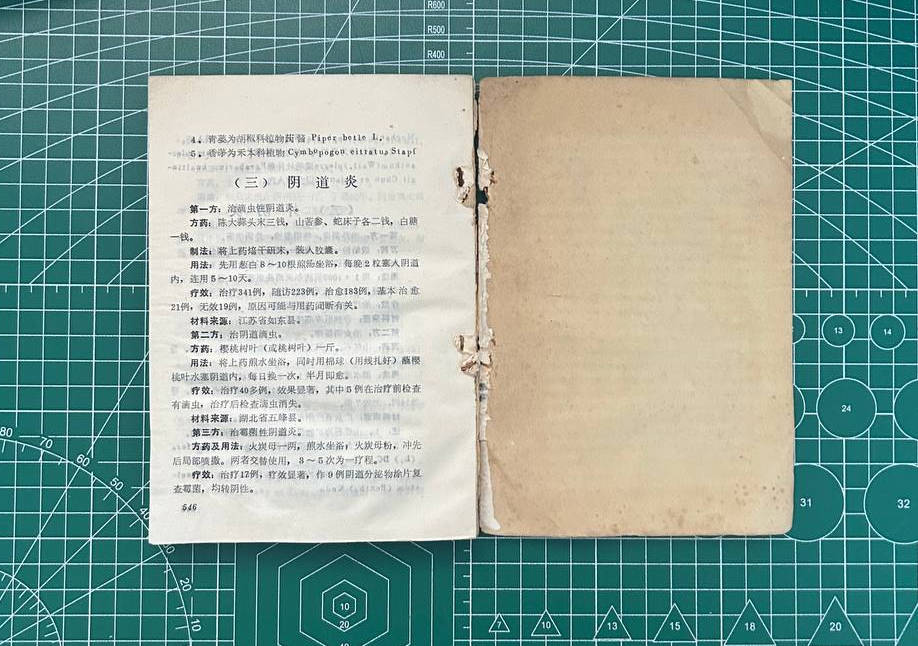 R600
R500
R400
4. 青蒌为胡椒科植物蒟酱 Piper betle L.
5. 香茅为禾本科植物 Cymbopogon citratus Stapf
（三） 阴道炎
第一方：治滴虫性阴道炎。
方药：陈大蒜头末三钱，山苦参、蛇床子各二钱，白糖
一钱。
制法：将上药焙干研末，装入胶囊。
用法：先用葱白8～10根煎汤坐浴，每晚2粒塞入阴道
内，连用5～10天。
疗效：治疗341例，随访223例，治愈183例，基本治愈
21例，无效19例，原因可能与用药间断有关。
材料来源：江苏省如东县。
第二方：治阴道滴虫。
方药：樱桃树叶（或桃树叶）一斤。
用法：将上药煎水坐浴，同时用棉球（用线扎好）蘸樱
桃叶水塞阴道内，每日换一次，半月即愈。
疗效：治疗40多例，效果显著，其中5例在治疗前检查
有滴虫，治疗后检查滴虫消失。
材料来源：湖北省五峰县。
第三方：治霉菌性阴道炎。
方药及用法：火炭母一两，煎水坐浴，火炭母粉，冲先
后局部喷撒。两者交替使用，3～5次为一疗程。
疗效：治疗17例，疗效显著，作9例阴道分泌物涂片复
查霉菌，均转阴性。
546
13
14
24
31
32
80
70
60
50
40
30
20
10
10
20
7
10
13
15
18
20